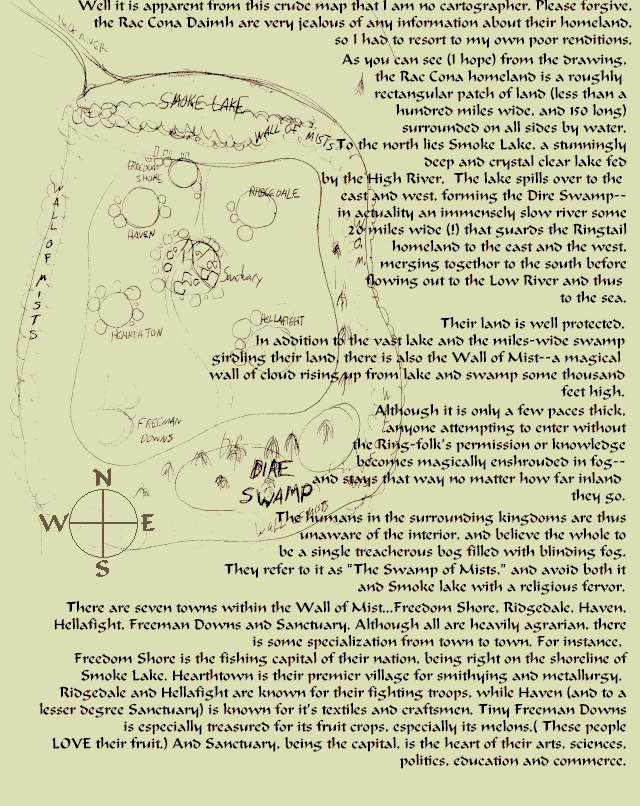 Well it is apparent from this crude map that I am no cartographer. Please forgive,
the Rac Cona Daimh are very jealous of any information about their homeland,
so I had to resort to my own poor renditions.
RIVER
As you can see (I hope) from the drawing,
the Rac Cona homeland is a roughly
rectangular patch of land (less than a
hundred miles wide, and 150 long)
surrounded on all sides by water.
SMOKE LAKE
WALL OF MISTS
To the north lies Smoke Lake, a stunningly
deep and crystal clear lake fed
by the High River. The lake spills over to the
east and west, forming the Dire Swamp--
in actuality an immensely slow river some
20 miles wide (!) that guards the Ringtail
homeland to the east and the west,
merging togethor to the south before
flowing out to the Low River and thus
to the sea.
FREEDOM
SHORE
RIDGEDALE
HAVEN
Sanctuary
WALL OF MISTS
HEARTHTON
HELLAFIGHT
Their land is well protected.
In addition to the vast lake and the miles-wide swamp
girdling their land, there is also the Wall of Mist--a magical
wall of cloud rising up from lake and swamp some thousand
feet high.
Although it is only a few paces thick,
anyone attempting to enter without
the Ring-folk's permission or knowledge
becomes magically enshrouded in fog--
and stays that way no matter how far inland
they go.
FREEMAN
DOWNS
DIRE
SWAMP
N
W E
S
The humans in the surrounding kingdoms are thus
unaware of the interior, and believe the whole to
be a single treacherous bog filled with blinding fog.
They refer to it as "The Swamp of Mists," and avoid both it
and Smoke lake with a religious fervor.
There are seven towns within the Wall of Mist...Freedom Shore, Ridgedale, Haven,
Hellafight, Freeman Downs and Sanctuary. Although all are heavily agrarian, there
is some specialization from town to town. For instance,
Freedom Shore is the fishing capital of their nation, being right on the shoreline of
Smoke Lake. Hearthtown is their premier village for smithying and metallurgy.
Ridgedale and Hellafight are known for their fighting troops, while Haven (and to a
lesser degree Sanctuary) is known for it's textiles and craftsmen. Tiny Freeman Downs
is especially treasured for its fruit crops, especially its melons.( These people
LOVE their fruit.) And Sanctuary, being the capital, is the heart of their arts, sciences,
politics, education and commerce.